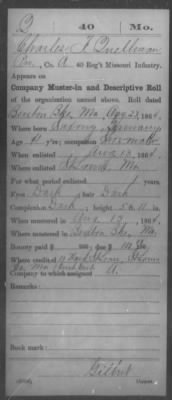 Q 40 Mo.
Charles F. Quellman
Co. A, 40 Reg't Missouri Infantry.
Appears on
Company Muster-in and Descriptive Roll
of the organization named above. Roll dated
Benton Bks, Mo. Aug 23, 1864.
Where born Saxony, Germany
Age y'rs; occupation
When enlisted Aug 13, 1864.
Where enlisted St Louis Mo
For what period enlisted 1 years.
Eyes Dark; hair Dark
Complexion Dark; height 5 ft. 11 in.
When mustered in Aug 23, 1864.
Where mustered in Benton Bks, Mo.
Bounty paid $ 100; due $ 100
Where credited St Louis
Co. Mo
Company to which assigned A.
Remarks:
Book mark:
Gilbert
Copyist.